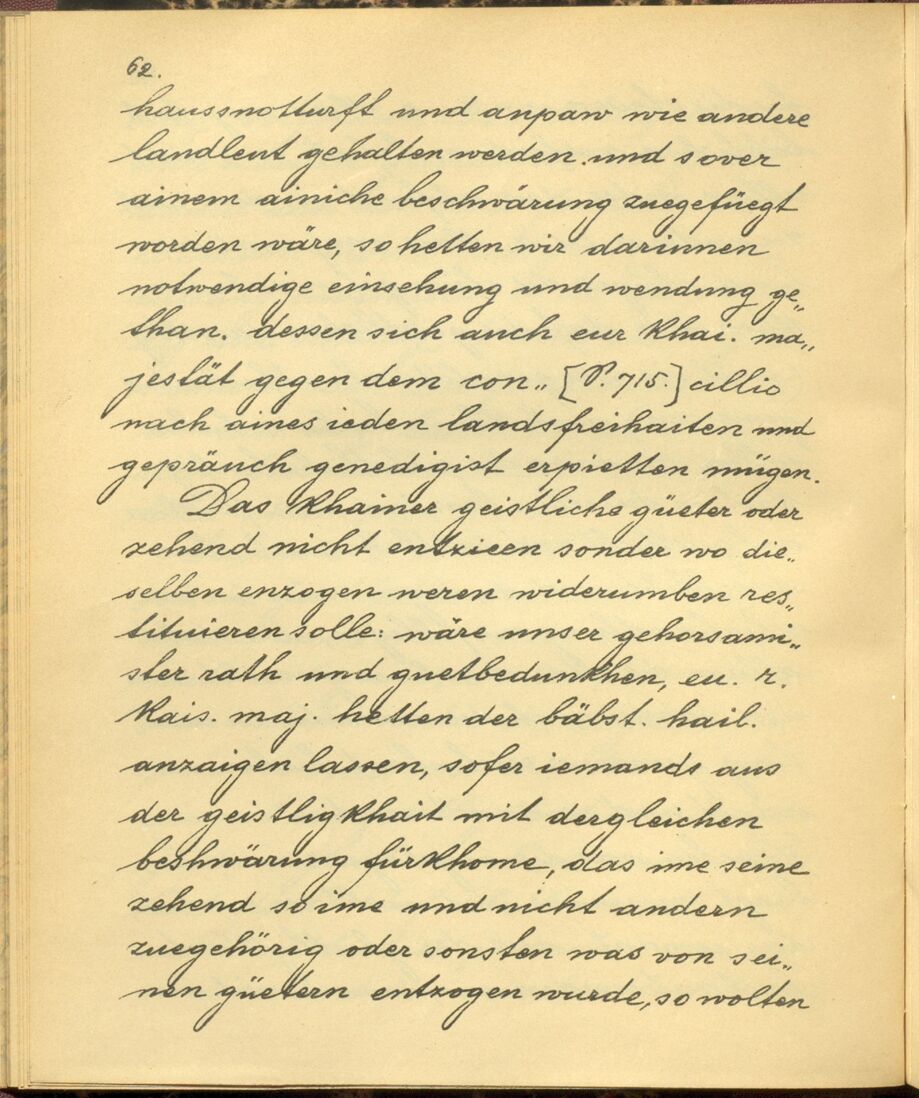 62.
haussnotturft und anpaw wie andere
landleut gehalten werden. und sover
ainem ainiche beschwärung zuegefüegt
worden wäre, so hetten wir darinnen
notwendige einsehung und wendung ge„
than. dessen sich auch eur Khai. ma„
jestät gegen dem con„ [P. 715.] cillio
nach aines ieden landsfreihaiten und
gepräuch genedigist erpietten mügen.
Das Khainer geistliche güeter oder
zehend nicht entzieen sonder wo die„
selben enzogen weren widerumben res„
tituieren solle: wäre unser gehorsami„
ster rath und guetbedunkhen, eu. r.
Kais. maj. hetten der bäbst. hail.
anzaigen lassen, sofer iemands aus
der geistligkhait mit dergleichen
beshwärung fürkhome, das ime seine
zehend so ime und nicht andern
zuegehörig oder sonsten was von sei„
nen güetern entzogen wurde, so wolten